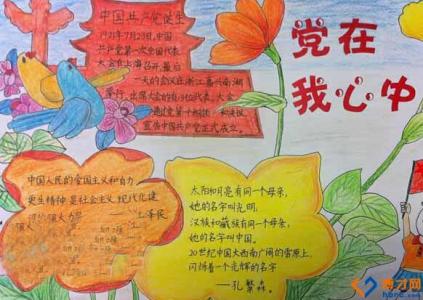 中国共产党诞生
1921年7月23日,中国
共产党第一次全国代表
大会在上海召开,最后
一天的会议在浙江嘉兴南湖
举行,出席大会的有13位代表,大会
通过党第一个纲领和决议
宣告中国共产党正式成立。
党在
我心中
中国人民的爱国主义和自力
更生精神是社会主义现代化建
江泽民
太阳和月亮有同一个母亲,
她的名字叫光明,
汉族和藏族有同一个母亲,
她的名字叫中国。
20世纪中国大西南广阔的雪原上,
闪扬着一个光辉的名字
——孔繁森。
博才网
hbrc.com